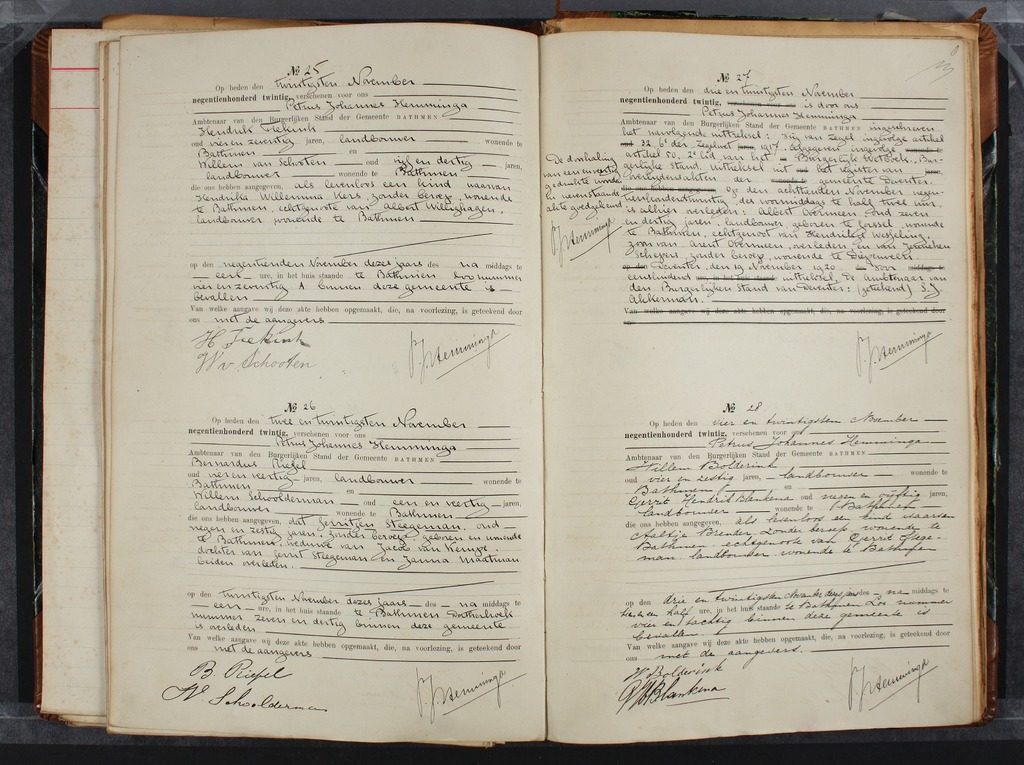 № 25
Op heden den twintigsten November
negentienhonderd twintig, verschenen voor ons
Petrus Johannes Hemminga
Ambtenaar van den Burgerlijken Stand der Gemeente BATHMEN
Hendrik
oud vier en zeventig jaren, landbouwer wonende te
Bathmen en
Willem van Schooten oud vijf en dertig jaren,
landbouwer wonende te Bathmen
die ons hebben aangegeven, als levenloos een kind waarvan
Hendrika Willemina Kers, zonder beroep, wonende
te Bathmen, echtgenoote van Albert Willighagen,
landbouwer, wonende te Bathmen
op den negentienden November dezes jaars des na middags te
een ure, in het huis staande te Bathmen Loo nummer
vier en zeventig A binnen deze gemeente is
bevallen
Van welke aangave wij deze akte hebben opgemaakt, die, na voorlezing, is geteekend door
ons met de aangevers
H
W v. Schooten
P. J. Hemminga
№ 26
Op heden den twee en twintigsten November
negentienhonderd twintig, verschenen voor ons
Petrus Johannes Hemminga
Ambtenaar van den Burgerlijken Stand der Gemeente BATHMEN
Bernardus Riefel
oud vier en veertig jaren, landbouwer wonende te
Bathmen en
Willem Schoolderman oud een en veertig jaren,
landbouwer wonende te Bathmen
die ons hebben aangegeven, dat Gerritjen Steegeman, oud
negen en zestig jaren, zonder beroep, geboren en wonende
te Bathmen, weduwe van Jacob van
dochter van Gerrit Steegeman en Janna Maatman,
beiden overleden.
op den twintigsten November dezes jaars des na middags te
een ure, in het huis staande te Bathmen Dortherhoek
nummer zeven en dertig binnen deze gemeente
is overleden
Van welke aangave wij deze akte hebben opgemaakt, die, na voorlezing, is geteekend door
ons met de aangevers
B. Riefel
W. Schoolderman
P. J. Hemminga
№ 27
Op heden den drie en twintigsten November
negentienhonderd twintig, verschenen voor ons is door ons
Petrus Johannes Hemminga
Ambtenaar van den Burgerlijken Stand der Gemeente BATHMEN ingeschreven
het navolgende uittreksel: Vrij van zegel ingevolge artikel
oud 32, 6° der Zegelwet jaren, 1917. Afgegeven ingevolge wonende te
artikel 50, 2e lid van het en Burgerlijk Wetboek. Bur-
gerlijke Stand. Uittreksel uit oud het register van jaren,
overlijdensakten der wonende te gemeente Deventer.
die ons hebben aangegeven, Op den achttienden November negen-
tienhonderdtwintig, des voormiddags te half twee uur,
is alhier overleden: Albert Overmeen oud zeven
en dertig jaren, landbouwer, geboren te Gorssel, wonende
te Bathmen, echtgenoot van Hendrikje Wesseling,
zoon van Arent Overmeen, overleden, en van Janneken
Schepers, zonder beroep, wonende te Diepenveen.
op den Deventer, den 19 November 1920. des Voor middags te
eensluidend ure, in het huis staande uittreksel, De ambtenaar van
den Burgerlijken Stand van Deventer: (geteekend) S. J.
Ackerman.
Van welke aangave wij deze akte hebben opgemaakt, die, na voorlezing, is geteekend door
ons
De doorhaling
van een en veertig
gedrukte woorden
in nevenstaande
akte goedgekeurd
P. J. Hemminga
P. J. Hemminga
№ 28
Op heden den vier en twintigsten November
negentienhonderd twintig, verschenen voor ons
Petrus Johannes Hemminga
Ambtenaar van den Burgerlijken Stand der Gemeente BATHMEN
Willem Bolderink
oud vier en zestig jaren, landbouwer wonende te
Bathmen en
Gerrit Hendrik Blankena oud negen en vijftig jaren,
landbouwer wonende te Bathmen
die ons hebben aangegeven, als levenloos een kind waarvan
Aaltje Brender, zonder beroep, wonende te
Bathmen, echtgenoote van Gerrit Stege-
man, landbouwer, wonende te Bathmen
op den drie en twintigsten November dezes jaars des na middags te
half ure, in het huis staande te Bathmen Loo nummer
vier en tachtig binnen deze gemeente is
bevallen
Van welke aangave wij deze akte hebben opgemaakt, die, na voorlezing, is geteekend door
ons met de aangevers.
W Bolderink
G H Blankena
P. J. Hemminga